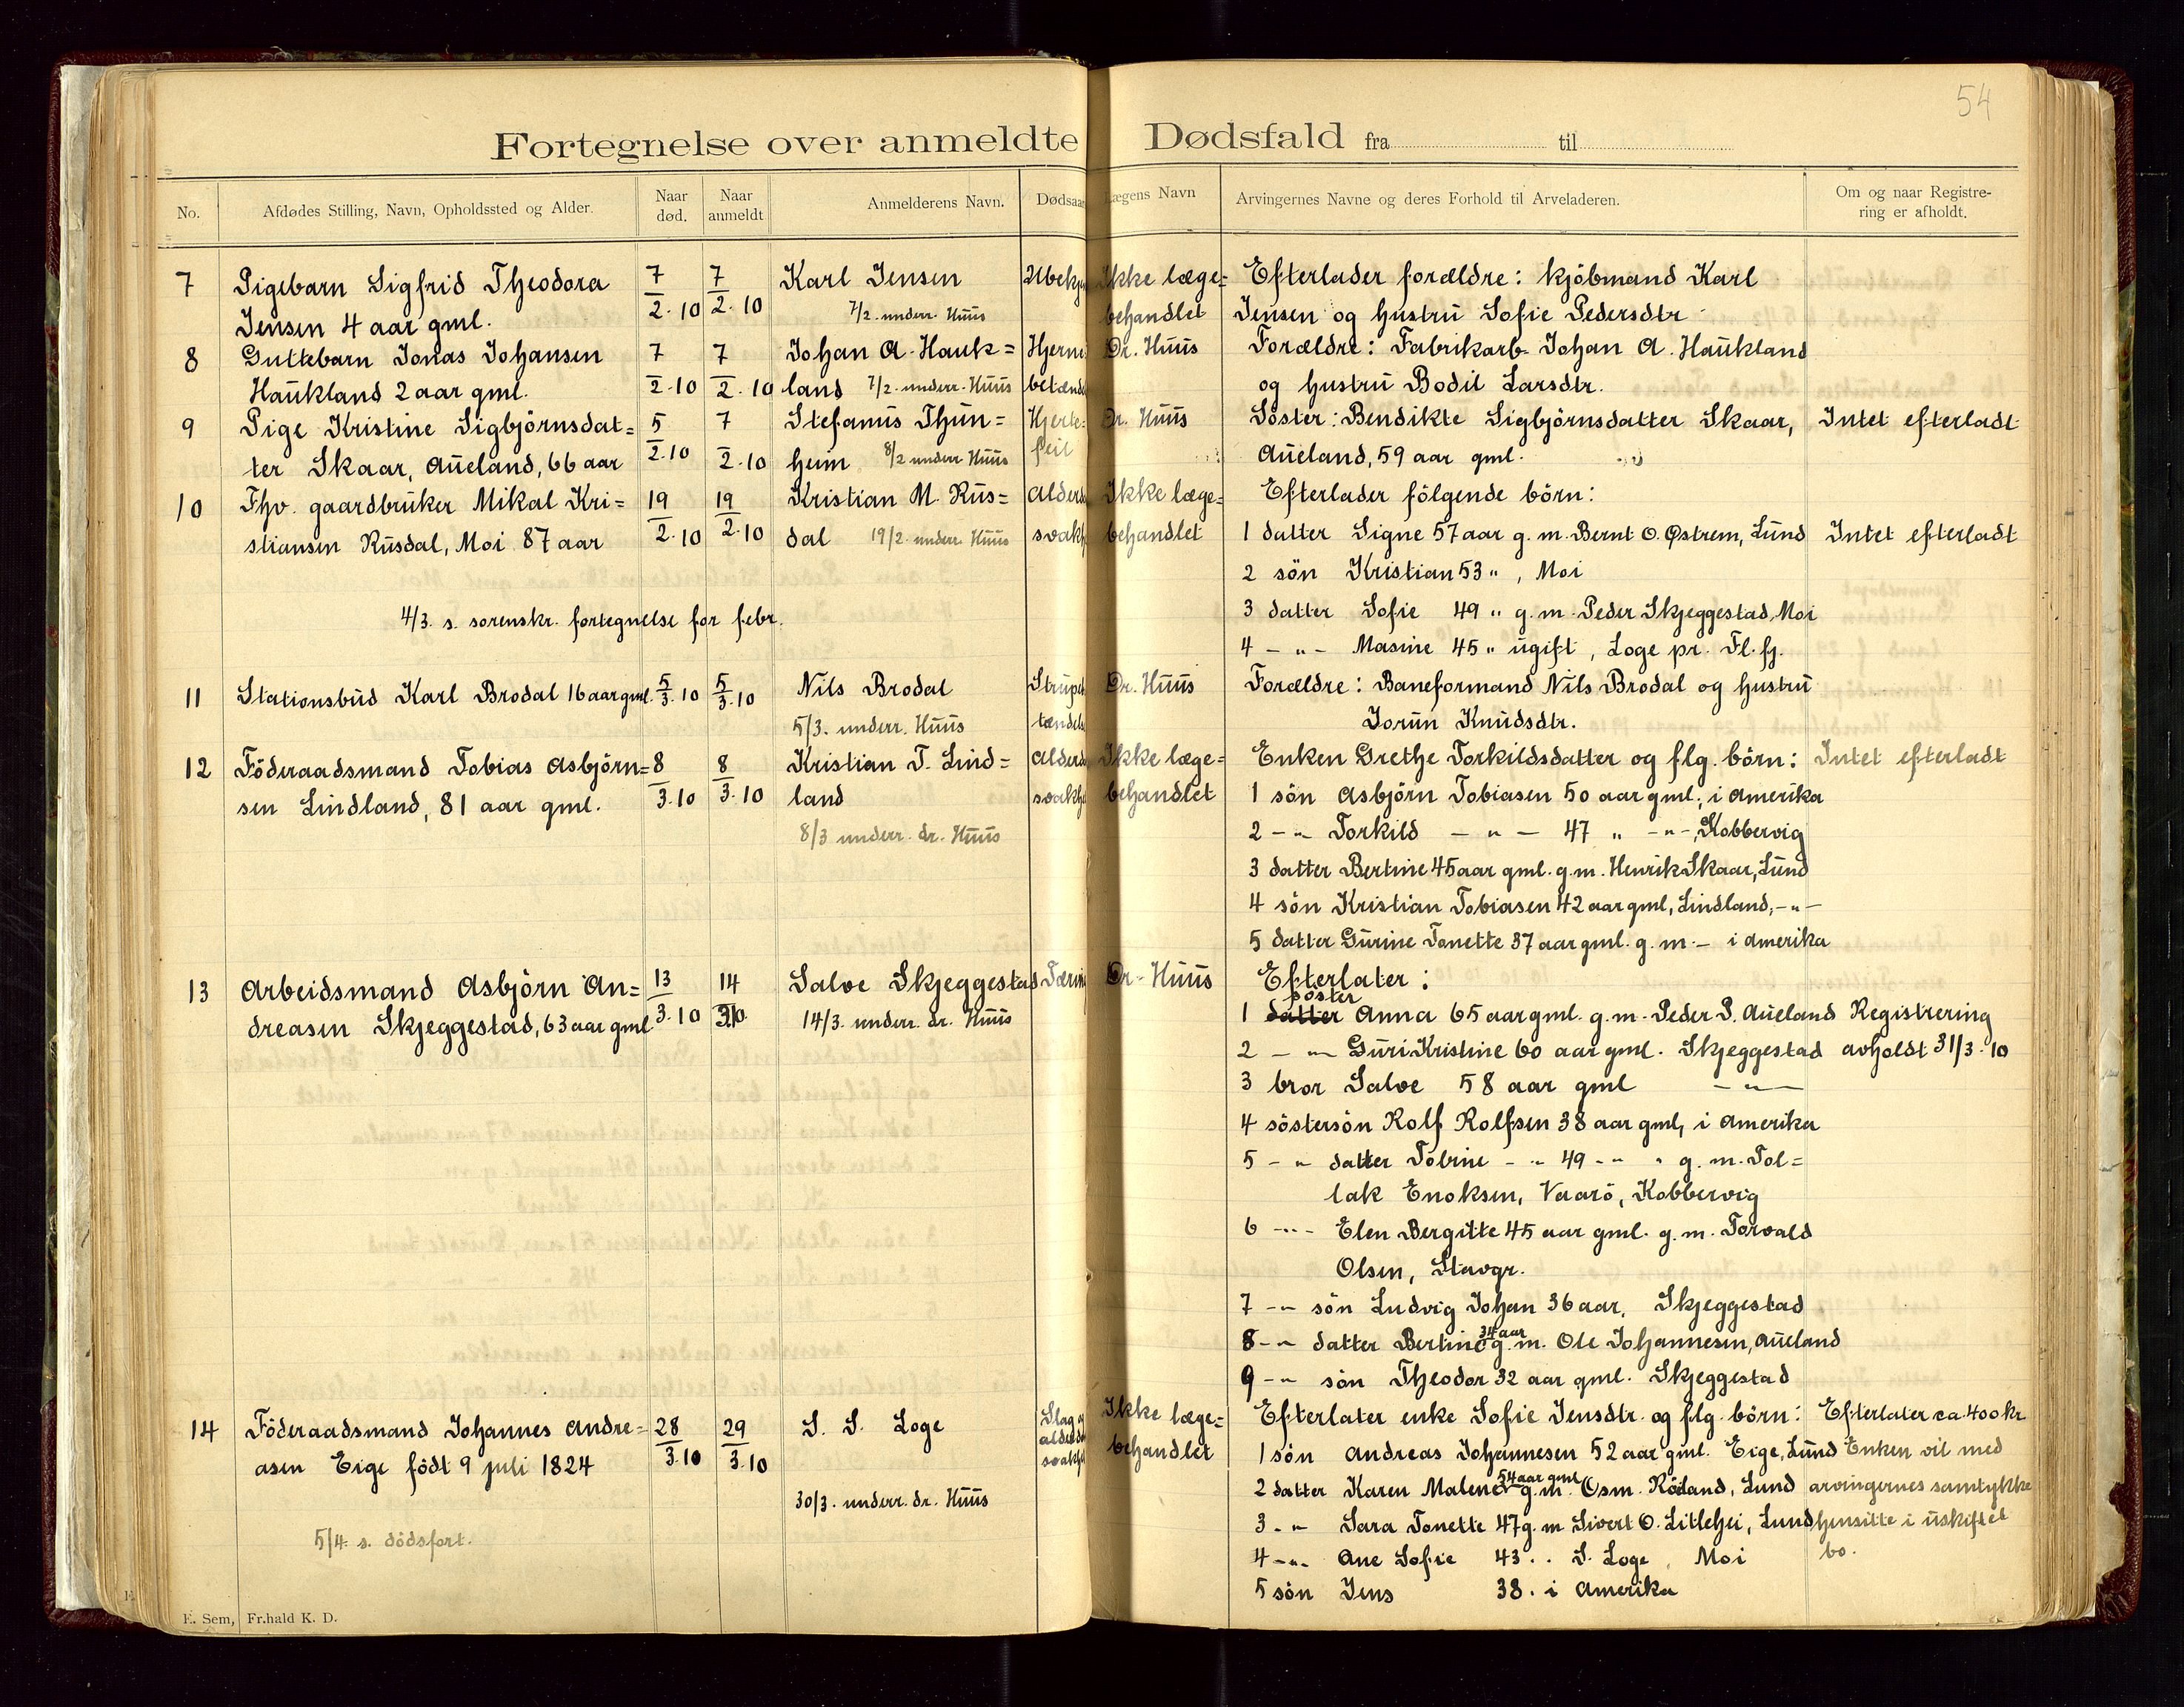 54
Fortegnelse over anmeldte Dødsfald fra til
No. Afdødes Stilling, Navn, Opholdssted og Alder. Naar død. Naar anmeldt Anmelderens Navn. Dødsaar Lægens Navn Arvingernes Navne og deres Forhold til Arveladeren. Om og naar Registrering er afholdt.
7 Pigebarn Sigfrid Theodora 7/2.10 7/2.10 Karl Jensen Ubekj Ikke læge= Efterlader forældre: kjöbmand Karl
Jensen 4 aar gml. 7/2. underr. Huus behandlet Jensen og hustru Sofie Pedersdtr
8 Guttebarn Jonas Johansen 7/2.10 7/2.10 Johan A. Hauk= Hjerne Dr. Huus Forældre: Fabrikarb. Johan A. Haukland
Haukland 2 aar gml. land 7/2. underr. Huus betænd og hustru Bodil Larsdtr.
9 Pige Kristine Sigbjörnsdat= 5/2.10 7/2.10 Stefanus Thun= Hjerte= Dr. Huus Söster: Bendikte Sigbjörnsdatter Skaar, Intet efterladt
ter Skaar, Aueland, 66 aar heim 8/2 underr Huus feil Aueland, 59 aar gml.
10 Fhv. gaardbruker Mikal Kri= 19/2.10 19/2.10 Kristian M. Rus= Alderd Ikke læge= Efterlader fölgende börn:
stiansen Rusdal, Moi 87 aar dal 19/2. underr. Huus svakh behandlet 1 datter Signe 57 aar g. m. Bernt O. Østrem, Lund Intet efterladt
2 sön Kristian 53 " , Moi
4/3. s. sorenskr. fortegnelse for febr. 3 datter Sofie 49 " g. m. Peder Skjeggestad, Moi
4 - " - Masine 45 " ugift, Loge pr. Fl.fj.
11 Stationsbud Karl Brodal 16 aar gml. 5/3.10 5/3.10 Nils Brodal Strupe Dr. Huus Forældre: Baneformand Nils Brodal og hustru
5/3. underr. Huus tændels Jorun Knudsdtr.
12 Föderaadsmand Tobias Asbjörn= 8/3.10 8/3.10 Kristian T. Lind= Alderd Ikke læge= Enken Grethe Torkildsdatter og flg. börn: Intet efterladt
sen Lindland, 81 aar gml. land svakhe behandlet 1 sön Asbjörn Tobiasen 50 aar gml., i Amerika
8/3 underr. dr. Huus 2 - " Torkild - " - 47 " - " -, Kobbervig
3 datter Bertine 45 aar gml. g. m. Henrik Skaar, Lund
4 sön Kristian Tobiasen 42 aar gml, Lindland, - " -
5 datter Gurine Tonette 37 aar gml. g. m. - i Amerika
13 Arbeidsmand Asbjörn An= 13/3.10 14/3.10 Salve Skjeggestad Tæring Dr. Huus Efterlater:
söster
dreasen Skjeggestad, 63 aar gml 14/3. underr. dr. Huus 1 datter Anna 65 aar gml. g. m. Peder P. Aueland Registrering
2 - " - Guri Kristine 60 aar gml. Skjeggestad avholdt 31/3. 10
3 bror Salve 58 aar gml - " -
4 söstersön Rolf Rolfsen 38 aar gml, i Amerika
5 - " datter Tobine - " 49 - " " g. m. Tol=
lak Enoksen, Vaarö, Kobbervig
6 - " - Elen Bergitte 45 aar gml. g. m. Torvald
Olsen, Stavgr.
7 - " sön Ludvig Johan 36 aar, Skjeggestad
34 aar
8 - " datter Bertine g. m. Ole Johannesen, Aueland
9 - " sön Theodor 32 aar gml. Skjeggestad
14 Föderaadsmand Johannes Andre= 28/3.10 29/3.10 S. S. Loge Slag og Ikke læge= Efterlater enke Sofie Jensdtr. og flg. börn: Efterlater ca 400 kr
asen Eige födt 9 juli 1824 alderdo svakh behandlet 1 sön Andreas Johannesen 52 aar gml. Eige, Lund Enken vil med
54 aar gml
30/3. underr. dr. Huus 2 datter Karen Malene g. m. Osm. Röiland, Lund arvingernes samtykke
3 - " Sara Tonette 47 g. m Sivert O. Litlehei, Lund hensitte i uskiftet
5/4. s. dödsfort. 4 - " - Ane Sofie 43 . . S. Loge, Moi bo.
5 sön Jens 38. i Amerika
E. Sem, Fr.hald K. D.